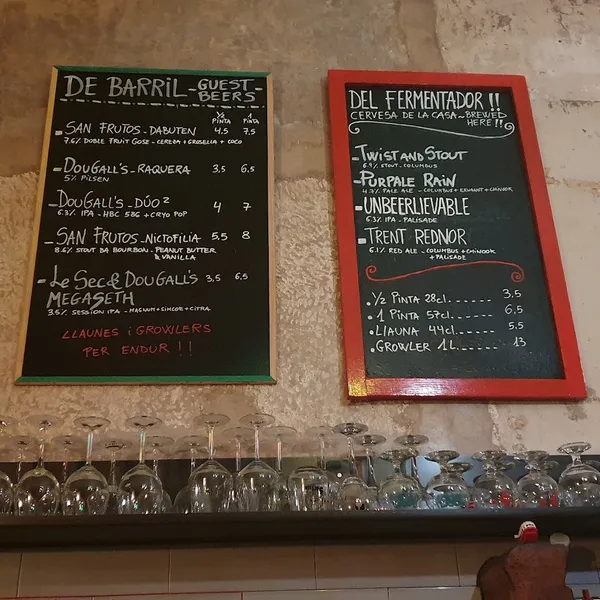 DE BARRIL - GUEST BEERS
½ PINTA 1 PINTA
- SAN FRUTOS - DABUTEN 4.5 7.5
7.6% DOBLE FRUIT GOSE - CEREZA + GROSELLA + COCO
- DOUGALL'S - RAQUERA 3.5 6.5
5% PILSEN
- DOUGALL'S - DÚO 2 4 7
6.3% IPA - HBC 586 + CRYO POP
- SAN FRUTOS - NICTOFILIA 5.5 8
8.6% STOUT BA BOURBON - PEANUT BUTTER
& VANILLA
- LE SEC & DOUGALL'S 3.5 6.5
MEGASETH
3.5% SESSION IPA - MAGNUM + SIMCOE + CITRA
LLAUNES i GROWLERS
PER ENDUR !!
DEL FERMENTADOR !!
CERVESA DE LA CASA - BREWED
HERE !!
- TWIST AND STOUT
6.9% STOUT - COLUMBUS
- PURPALE RAIN
4.7% PALE ALE - COLUMBUS + EKUANOT + CHINOOK
- UNBEERLIEVABLE
6.3% IPA - PALISADE
- TRENT REDNOR
6.1% RED ALE - COLUMBUS + CHINOOK
+ PALISADE
• ½ PINTA 28cl...... 3.5
• 1 PINTA 57cl...... 6.5
• LLAUNA 44cl...... 5.5
• GROWLER 1L...... 13